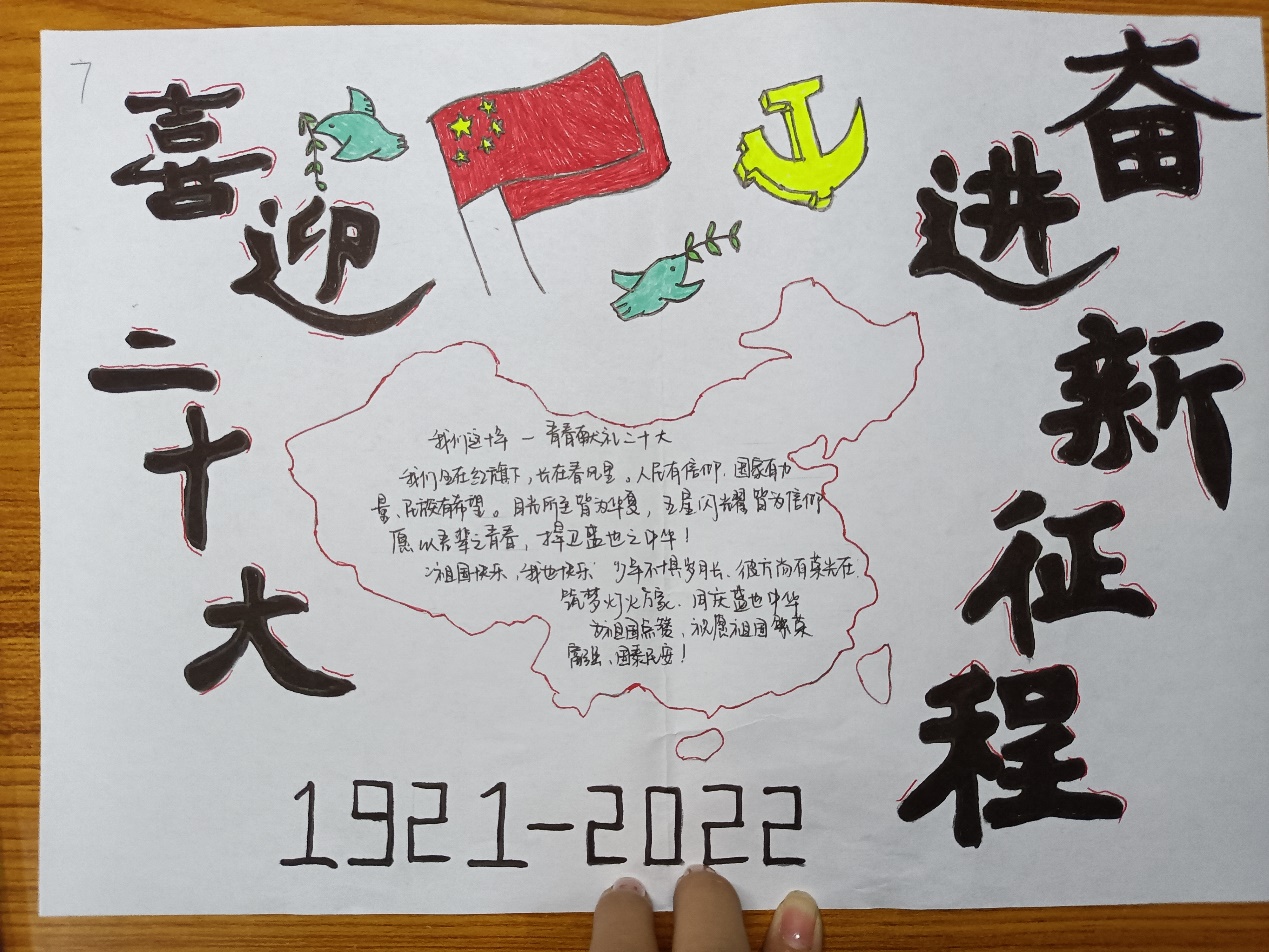 7
喜迎二十大
奋进新征程
我们这十年 — 青春献礼二十大
我们生在红旗下，长在春风里。人民有信仰．国家有力
量、民族有希望。目光所至皆为华夏，五星闪耀皆为信仰
愿以吾辈之青春，捍卫盛世之中华！
祖国快乐，我也快乐 少年不惧岁月长、彼方尚有荣光在
筑梦灯火万家．同庆盛世中华
为祖国点赞，祝愿祖国繁荣
富强、国泰民安！
1921-2022